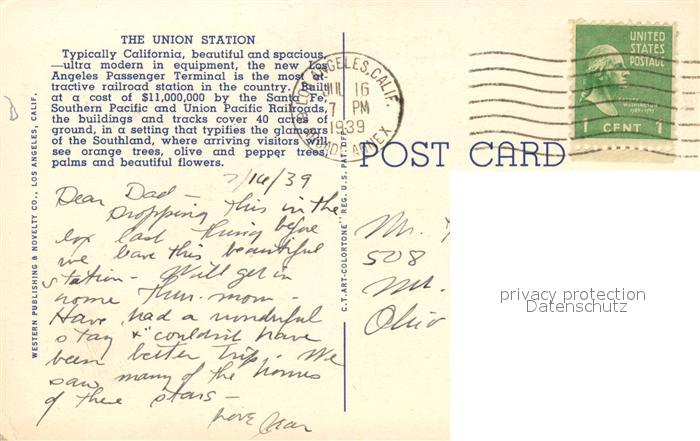 THE UNION STATION
Typically California, beautiful and spacious,
—ultra modern in equipment, the new Los
Angeles Passenger Terminal is the most at-
tractive railroad station in the country. Built
at a cost of $11,000,000 by the Santa Fe,
Southern Pacific and Union Pacific Railroads,
the buildings and tracks cover 40 acres of
ground, in a setting that typifies the glamours
of the Southland, where arriving visitors will
see orange trees, olive and pepper trees,
palms and beautiful flowers.
WESTERN PUBLISHING & NOVELTY CO., LOS ANGELES, CALIF.
C. T. ART-COLORTONE REG. U. S. PAT. OFF.
LOS ANGELES, CALIF.
JUL 16
7 PM
1939
ANNEX
UNITED
STATES
POSTAGE
WASHINGTON
1 CENT 1
POST CARD
7/16/39
Dear Dad —
Dropping this in the
box last thing before
we leave this beautiful
station — Will get in
home Thur. morn —
Have had a wonderful
stay & couldn't have
been better trip. We
saw many of the homes
of these stars —
Love
Mr.
508
Mt.
Ohio
privacy protection
Datenschutz